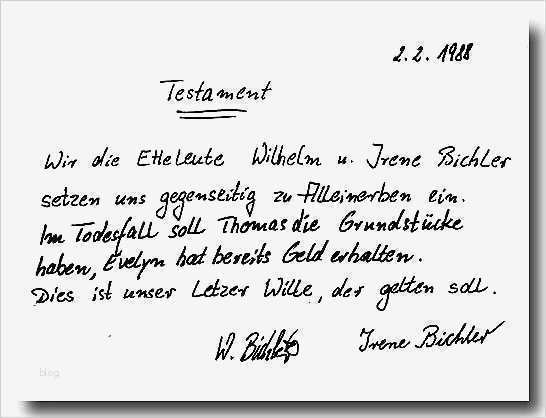 2.2.1988
Testament
Wir die Eheleute Wilhelm u. Irene Bichler
setzen uns gegenseitig zu Alleinerben ein.
Im Todesfall soll Thomas die Grundstücke
haben, Evelyn hat bereits Geld erhalten.
Dies ist unser Letzer Wille, der gelten soll.
W. Bichler Irene Bichler
blog